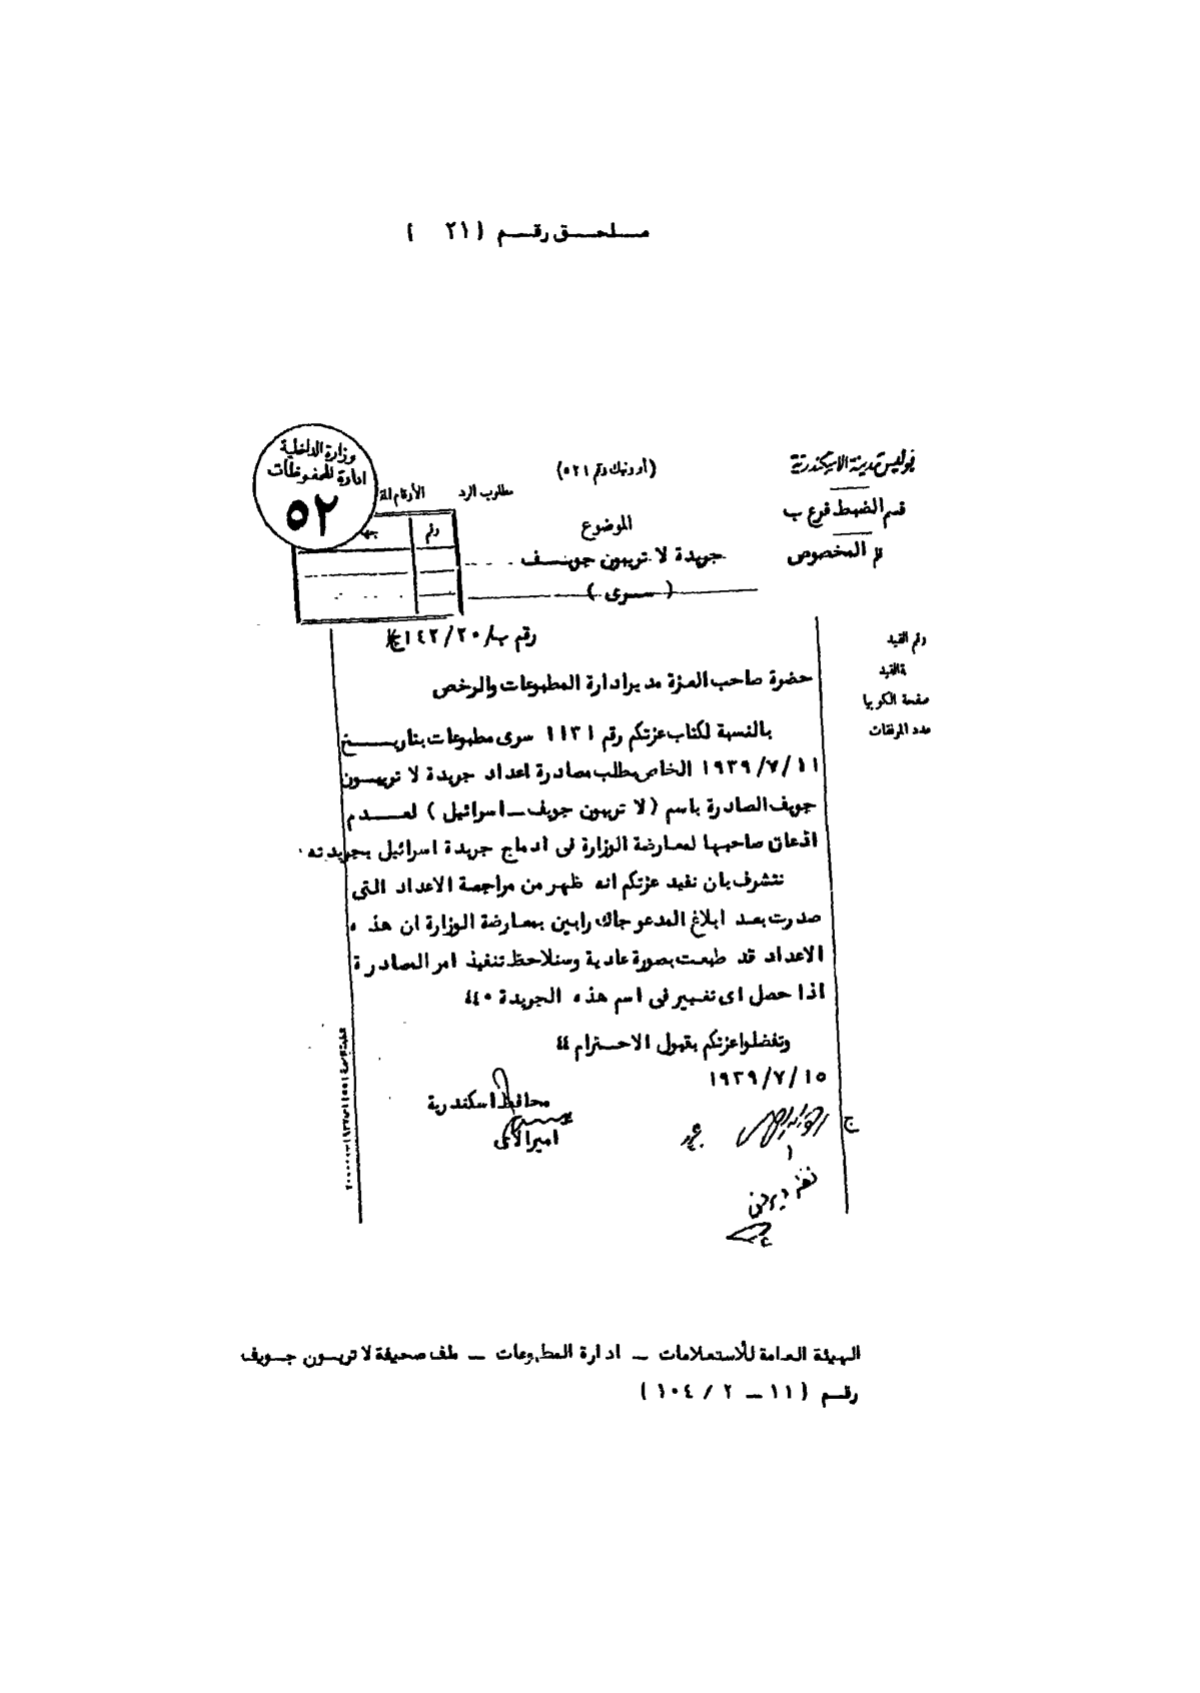 ملحق رقم (٢١ )
وزارة الداخلية
ادارة المحفوظات
٥٢
بوليس مدينة الاسكندرية
(أورنيك رقم ٥٢١)
مطلوب الرد
قسم الضبط فرع ب
الموضوع
رقم
قلم المخصوص
جريدة لا تريبون جويف
( سرى )
رقم ب/٢٠/١٤٢
رقم القيد
صفحة الكوبيا
عدد المرفقات
حضرة صاحب العزة مدير ادارة المطبوعات والرخص
بالنسبة لكتاب عزتكم رقم ١١٣١ سرى مطبوعات بتاريخ
١١/٧/١٩٣٩ الخاص بطلب مصادرة اعداد جريدة لا تريبون
جويف الصادرة باسم (لا تريبون جويف ـ اسرائيل ) لعدم
اذعان صاحبها لمعارضة الوزارة فى ادماج جريدة اسرائيل بجريدته ٠
نتشرف بان نفيد عزتكم انه ظهر من مراجعة الاعداد التى
صدرت بعد ابلاغ المدعو جاك رابين بمعارضة الوزارة ان هذه
الاعداد قد طبعت بصورة عادية وسنلاحظ تنفيذ امر المصادرة
اذا حصل اى تغيير فى اسم هذه الجريدة ٤٤٠
وتفضلوا عزتكم بقبول الاحترام ٤٤
١٥/٧/١٩٣٩
محافظ اسكندرية
اميرالاى
ج
الهيئة العامة للأستعلامات ـ ادارة المطبوعات ـ ملف صحيفة لا تريبون جويف
رقم (١١ ـ ٢ / ١٠٤ )